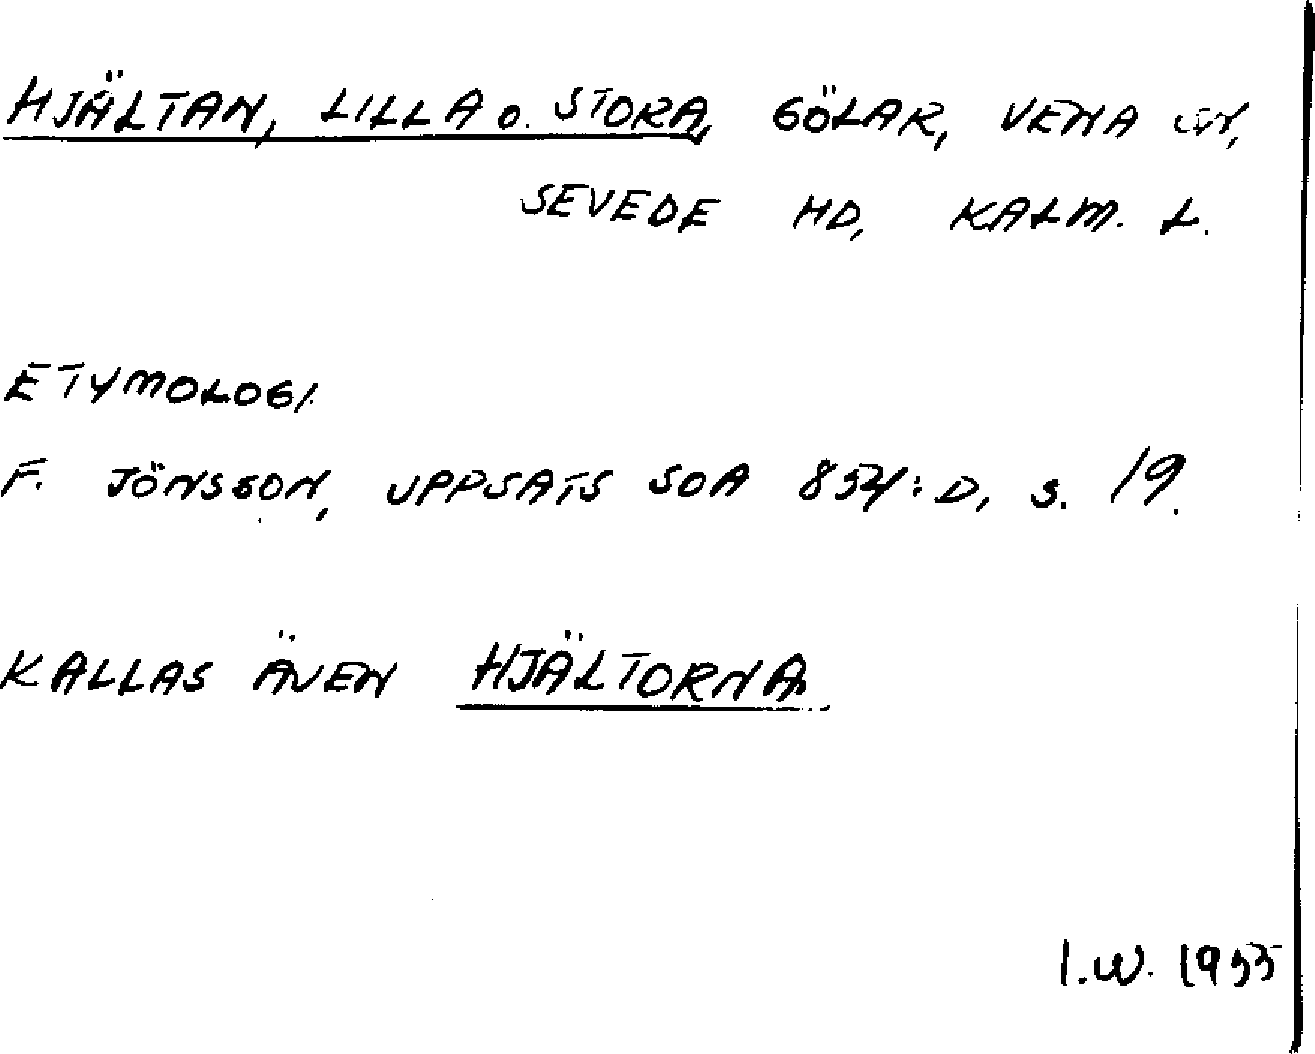 HJÄLTAN, LILLA o. STORA, GÖLAR, VENA SN,
SEVEDE HD, KALM. L.
ETYMOLOGI.
F. JÖNSSON, UPPSATS SOA 854:D, s. 19.
KALLAS ÄVEN HJÄLTORNA.
I.W. 1955